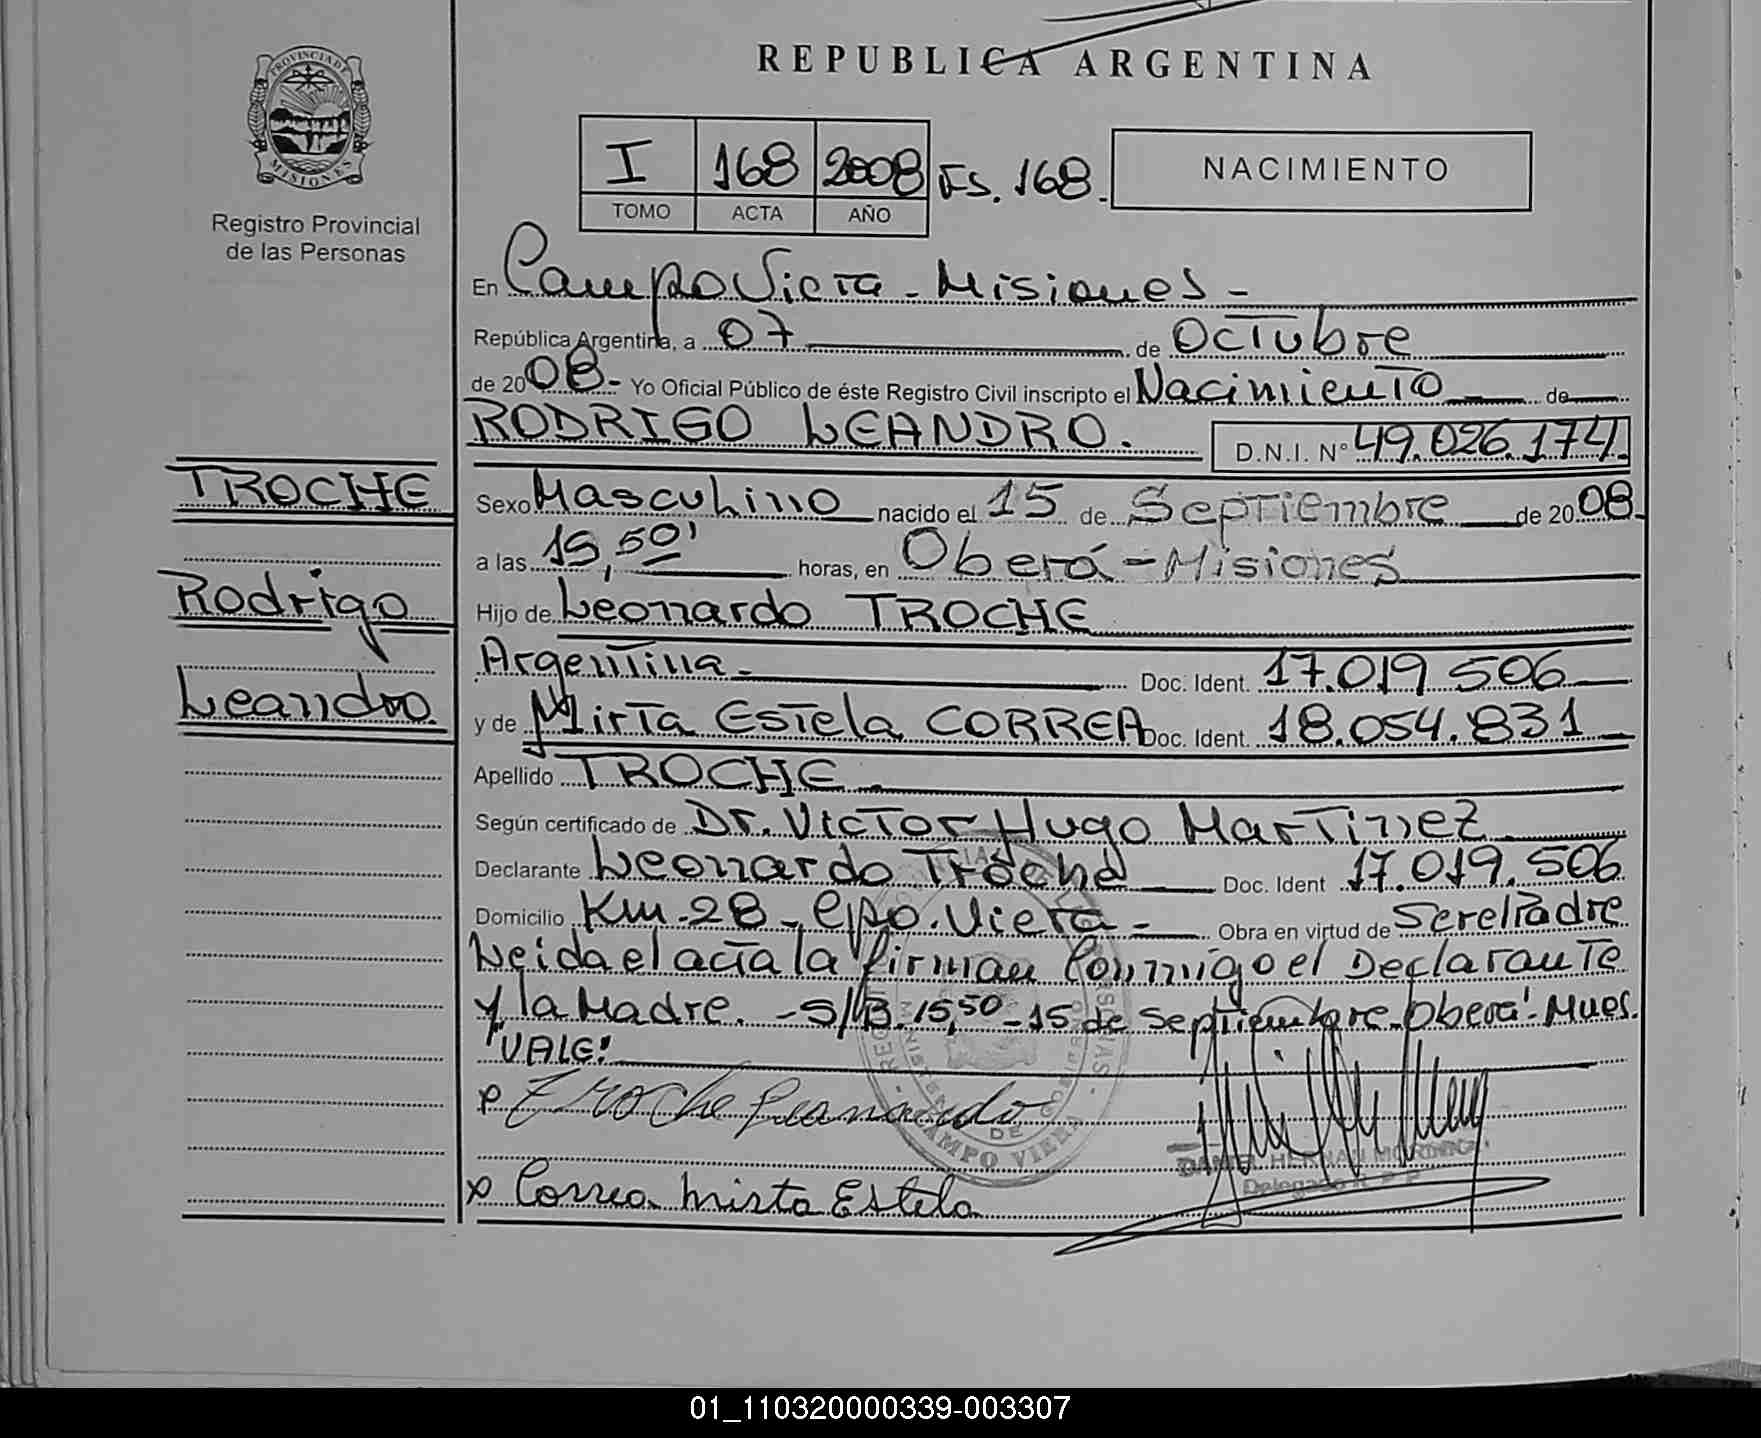 REPUBLICA ARGENTINA
PROVINCIA DE MISIONES
Registro Provincial
de las Personas
I 168 2008 Fs. 168.
TOMO ACTA AÑO
NACIMIENTO
En Campo Viera - Misiones -
República Argentina, a 07 de Octubre
de 2008 - Yo Oficial Público de éste Registro Civil inscripto el Nacimiento de
RODRIGO LEANDRO. D.N.I. Nº 49.026.174
TROCHE
Sexo Masculino nacido el 15 de Septiembre de 2008
a las 15,50' horas, en Oberá - Misiones
Rodrigo
Hijo de Leonardo TROCHE
Argentina - Doc. Ident. 17.019.506
Leandro
y de Mirta Estela CORREA Doc. Ident. 18.054.831
Apellido TROCHE
Según certificado de Dr. Victor Hugo Martinez
Declarante Leonardo Troche Doc. Ident 17.019.506
Domicilio Km. 28 - Cpo. Viera - Obra en virtud de Ser el Padre
Leida el acta la firman Conmigo el Declarante
y la Madre. - S/B. 15,50 - 15 de Septiembre - Oberá - Mnes.
"VALE"
Troche
CAMPO VIERA
DE
x Correa Mirta Estela
HERNAN
Delegado R. P. P.
01_110320000339-003307